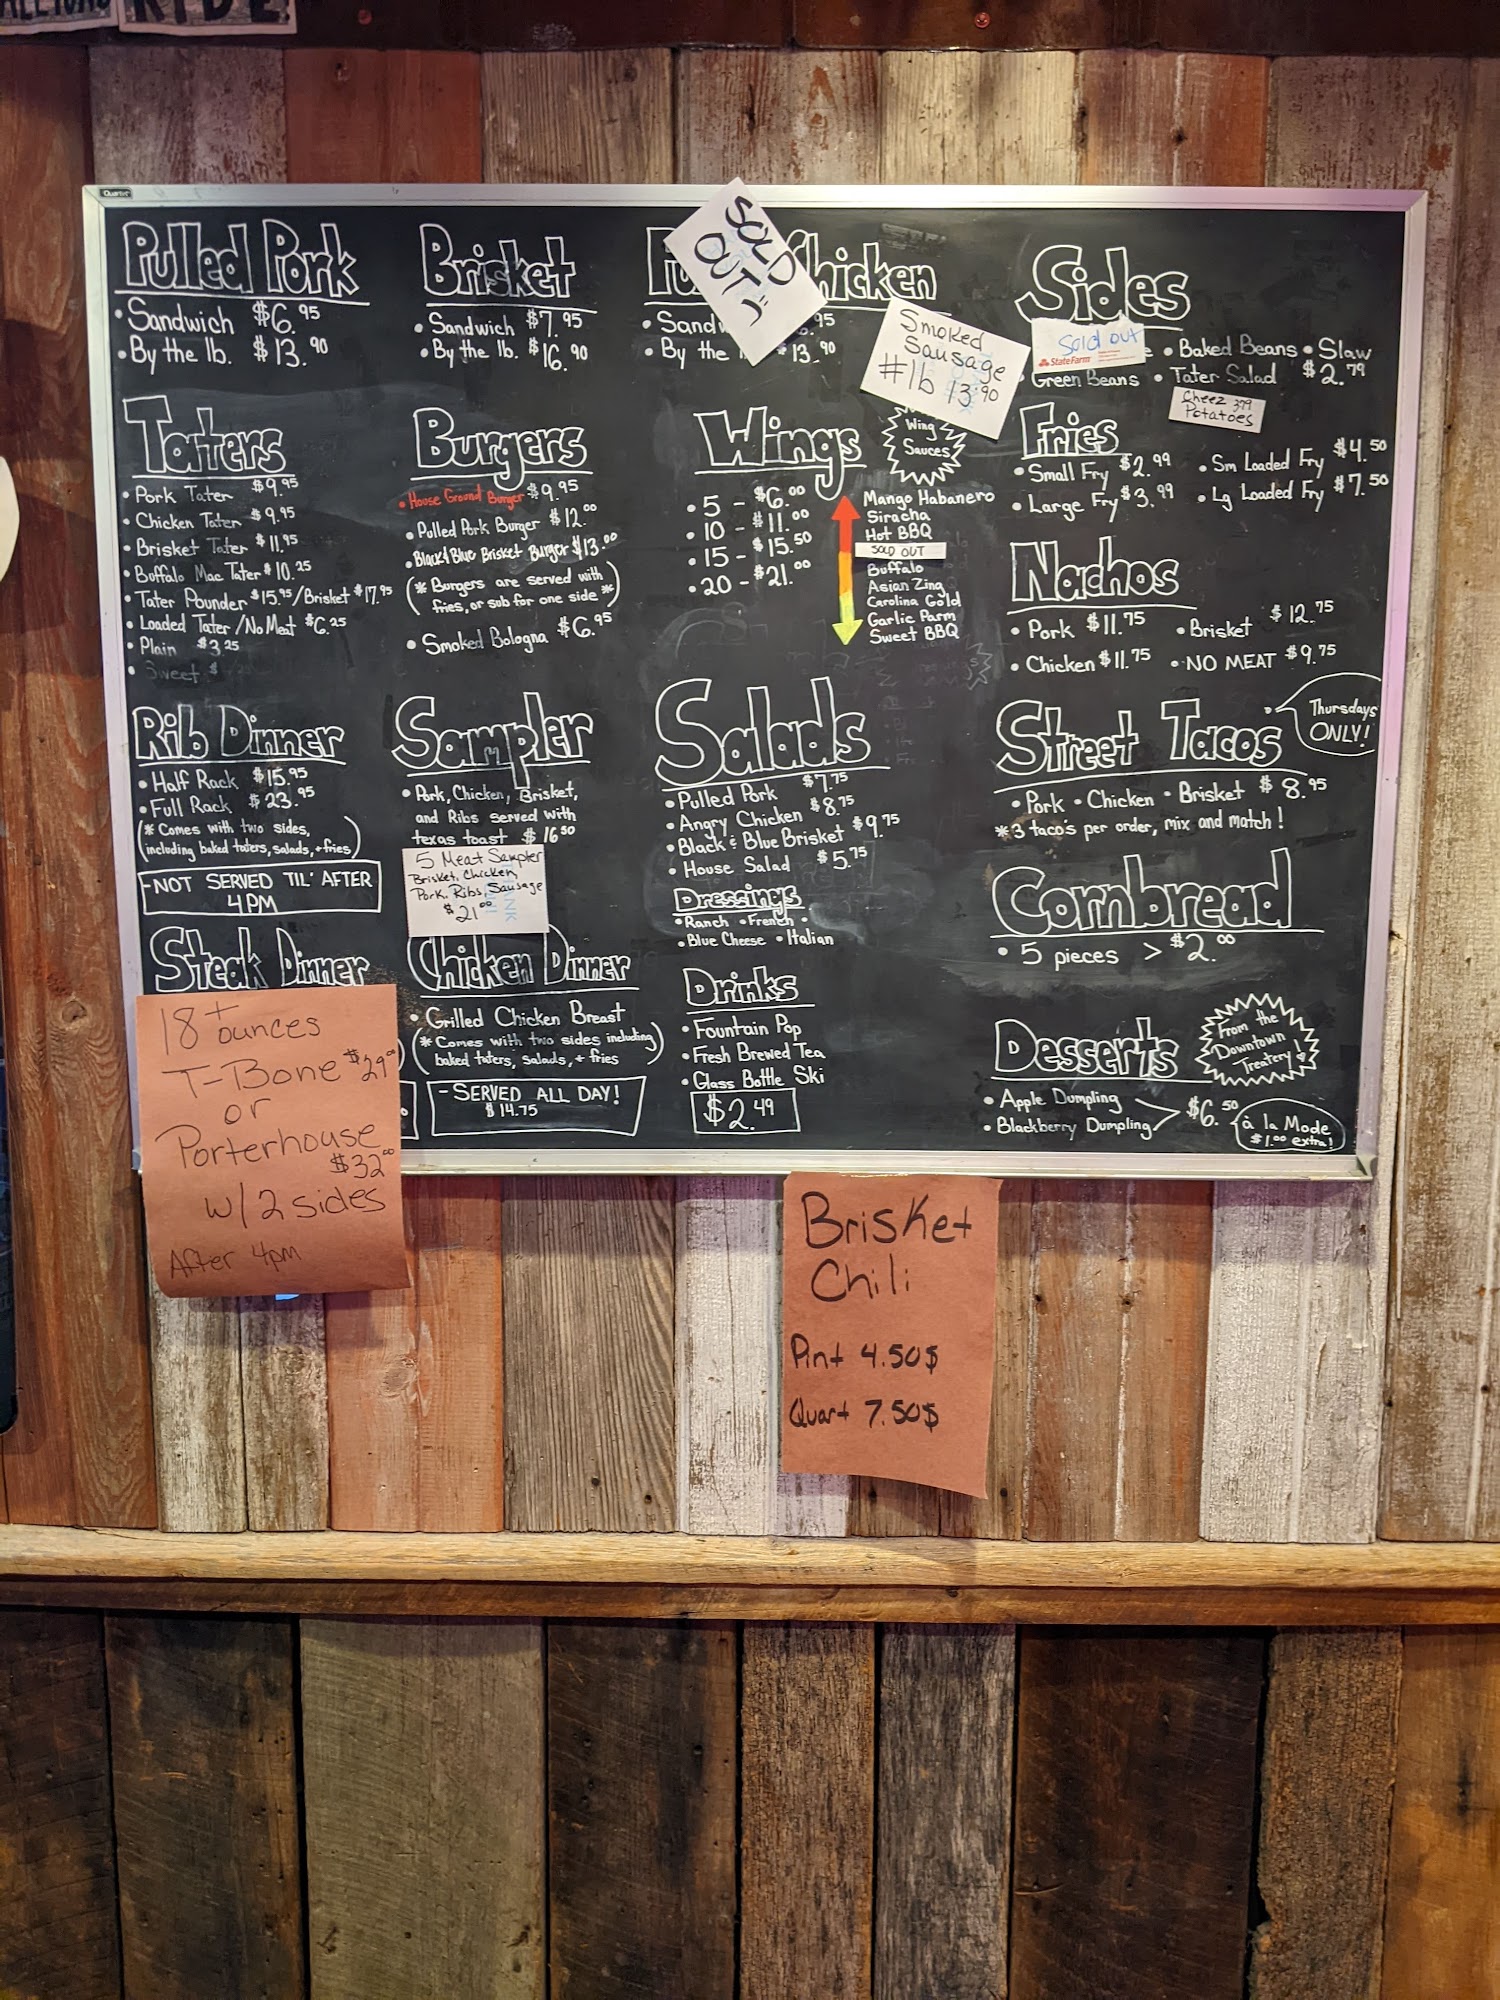 RIDE
Quartet
Pulled Pork
• Sandwich $6.95
• By the lb. $13.90
Brisket
• Sandwich $7.95
• By the lb. $16.90
SOLD
OUT
Chicken
• Sand .95
• By the 13.90
Smoked
Sausage
#1b 13.90
Sides
Sold out
StateFarm
• Baked Beans • Slaw
Green Beans • Tater Salad $2.79
Cheez 3.79
Potatoes
Taters
• Pork Tater $9.95
• Chicken Tater $9.95
• Brisket Tater $11.95
• Buffalo Mac Tater $10.25
• Tater Pounder $15.95/Brisket $17.95
• Loaded Tater/No Meat $6.25
• Plain $3.25
• Sweet $
Burgers
• House Ground Burger $9.95
• Pulled Pork Burger $12.00
• Black & Blue Brisket Burger $13.00
(* Burgers are served with
fries, or sub for one side *)
• Smoked Bologna $6.95
Wings
• 5 - $6.00
• 10 - $11.00
• 15 - $15.50
• 20 - $21.00
Wing
Sauces
Mango Habanero
Siracha
Hot BBQ
SOLD OUT
Buffalo
Asian Zing
Carolina Gold
Garlic Parm
Sweet BBQ
Fries
• Small Fry $2.99 • Sm Loaded Fry $4.50
• Large Fry $3.99 • Lg Loaded Fry $7.50
Nachos
• Pork $11.75 • Brisket $12.75
• Chicken $11.75 • NO MEAT $9.75
Rib Dinner
• Half Rack $15.95
• Full Rack $23.95
(* Comes with two sides,
including baked taters, salads, + fries)
-NOT SERVED TIL' AFTER
4PM
Sampler
• Pork, Chicken, Brisket,
and Ribs served with
texas toast $16.50
5 Meat Sampler
Brisket, Chicken,
Pork, Ribs, Sausage
$21.00
Salads
• Pulled Pork $7.75
• Angry Chicken $8.75
• Black & Blue Brisket $9.75
• House Salad $5.75
Dressings
• Ranch • French •
• Blue Cheese • Italian
Street Tacos
Thursdays
ONLY!
• Pork • Chicken • Brisket $8.95
*3 taco's per order, mix and match!
Cornbread
• 5 pieces > $2.00
Steak Dinner
18+ ounces
T-Bone $29.00
or
Porterhouse
$32.00
w/ 2 sides
After 4pm
Chicken Dinner
• Grilled Chicken Breast
(* Comes with two sides including
baked taters, salads, + fries)
- SERVED ALL DAY!
$14.75
Drinks
• Fountain Pop
• Fresh Brewed Tea
• Glass Bottle Ski
$2.49
Desserts
From the
Downtown
Treatery!
• Apple Dumpling
• Blackberry Dumpling
$6.50
à la Mode
$1.00 extra!
Brisket
Chili
Pint 4.50$
Quart 7.50$